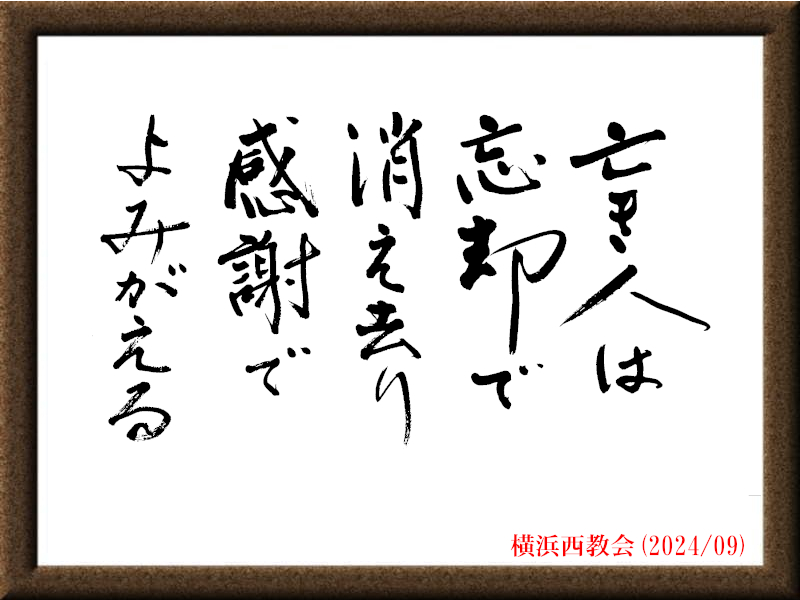 亡き人は
忘却で
消え去り
感謝で
よみがえる
横浜西教会(2024/09)